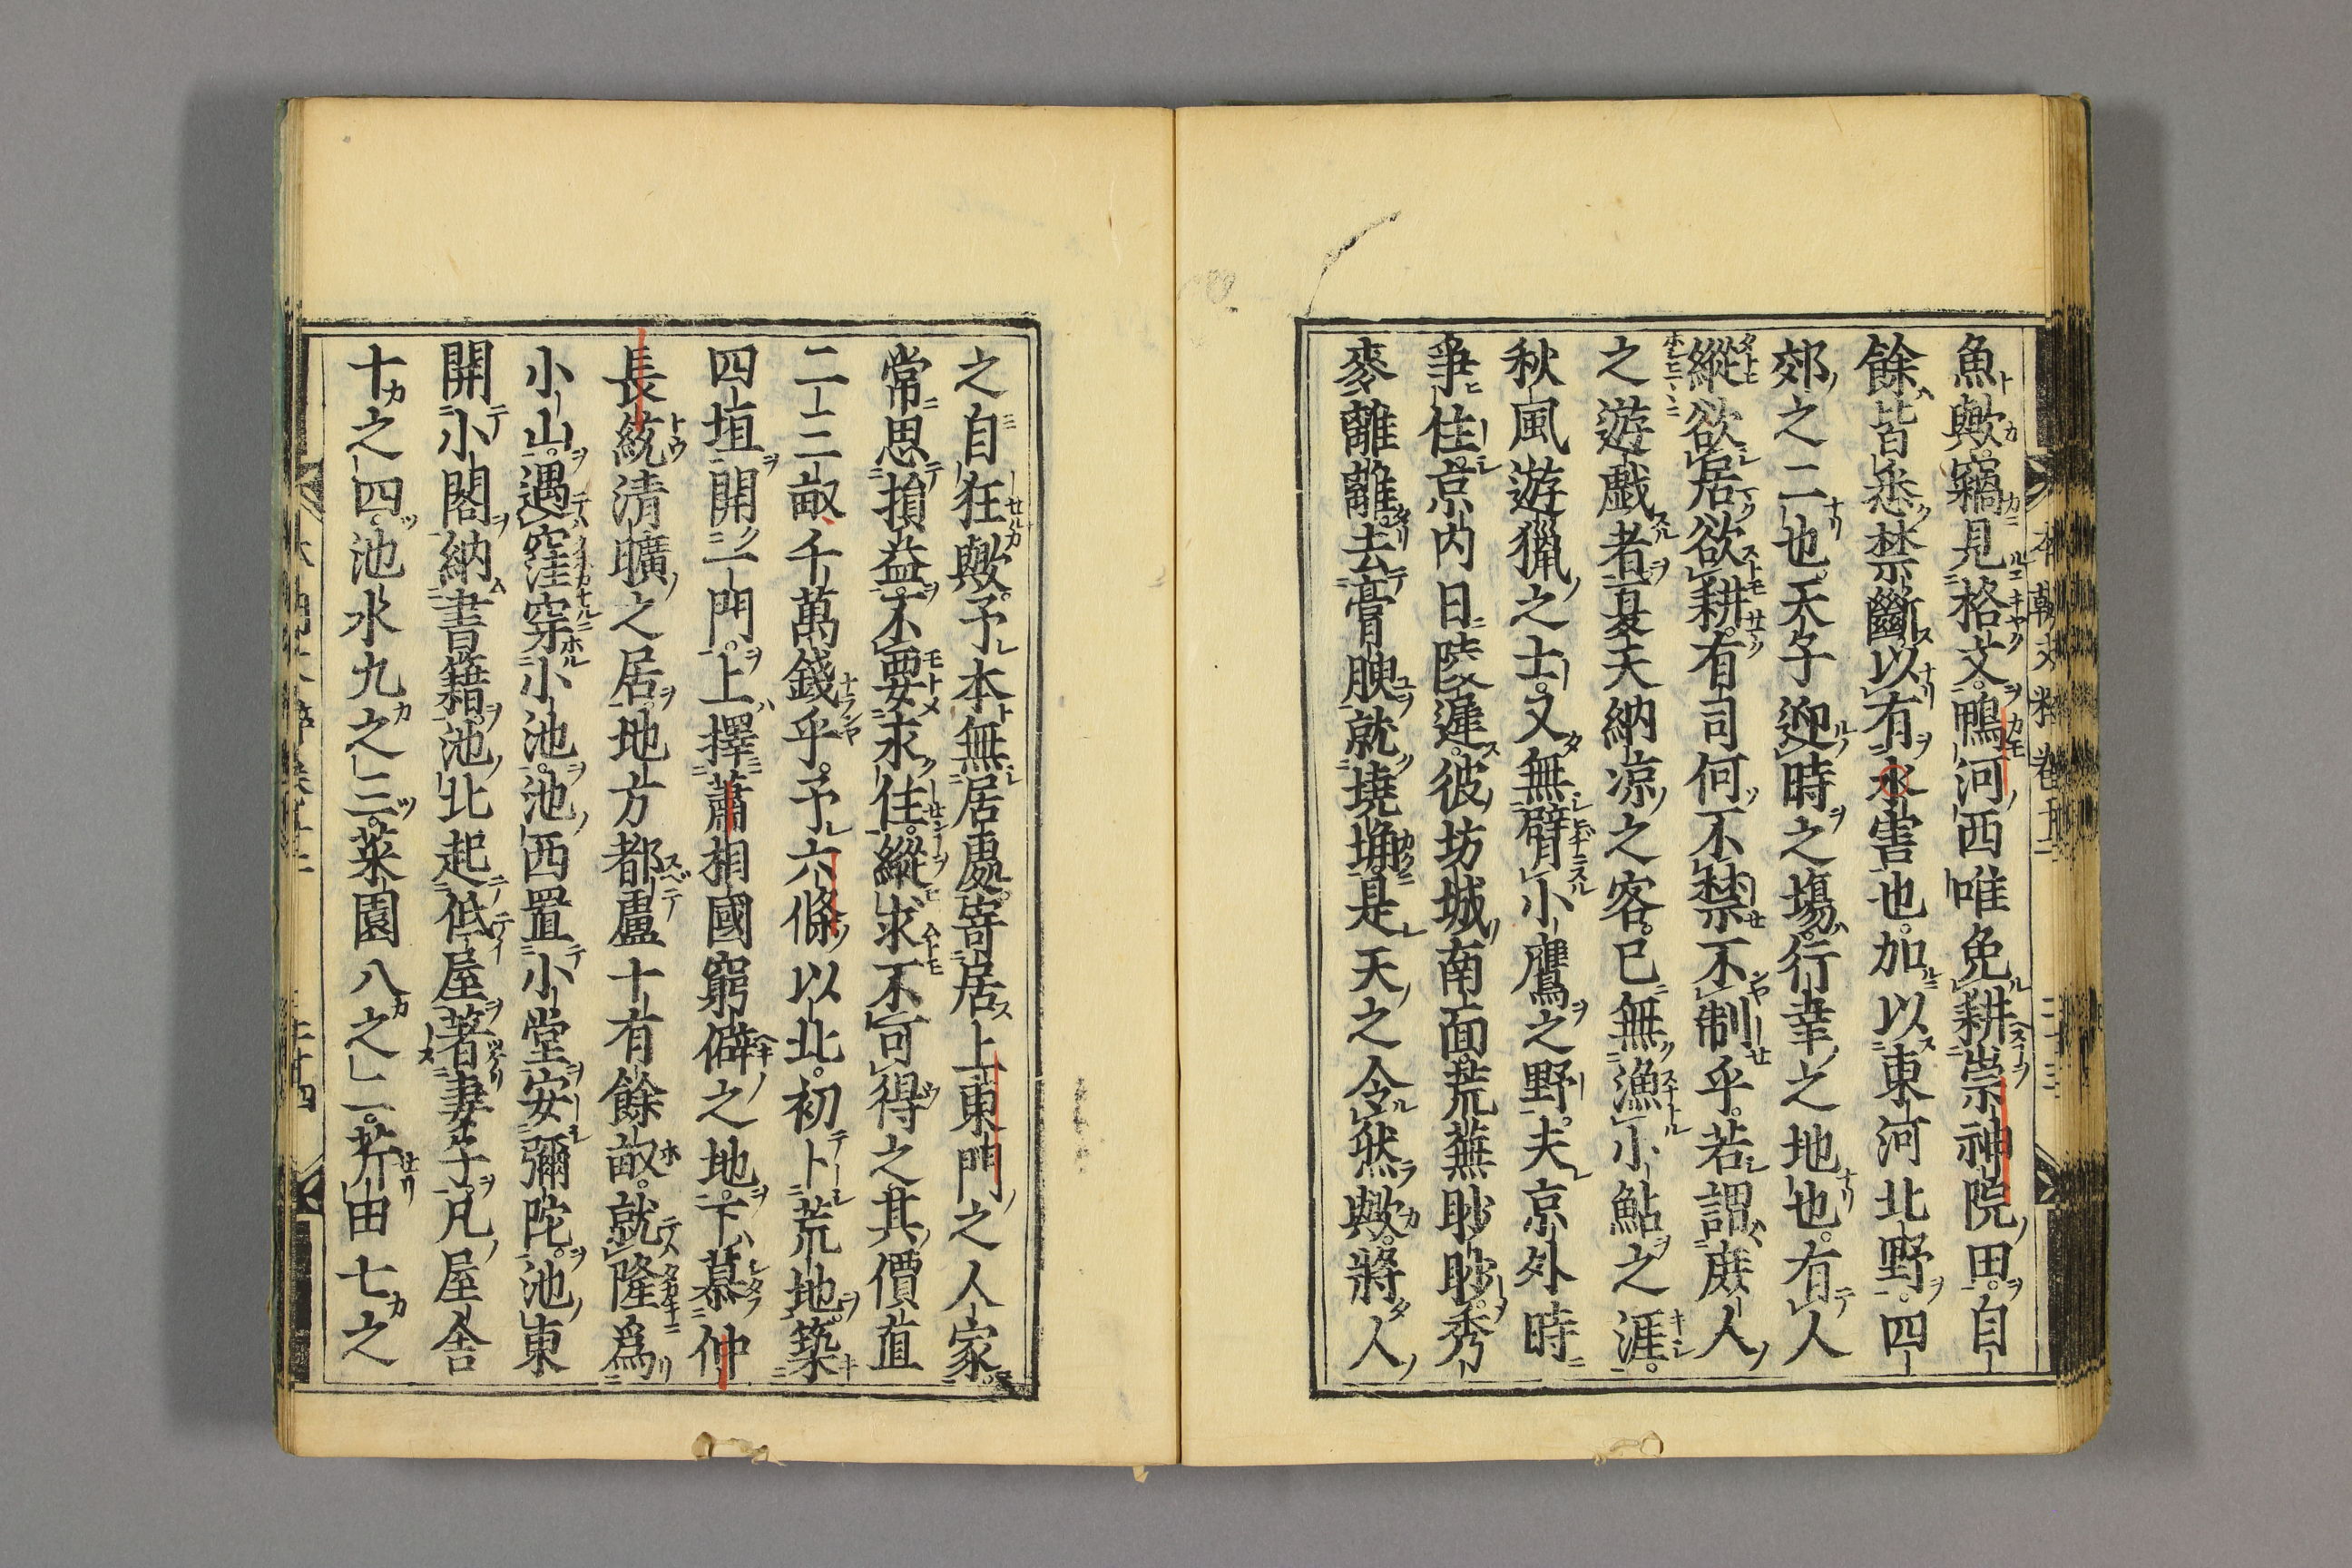 魚歟。竊見格文。鴨河西唯免耕崇神院田。自
餘皆悉禁斷。以有水害也。加以東河北野。四
郊之二也。天子迎時之場。行幸之地也。有人
縱欲居欲耕。有司何不禁不制乎。若謂庶人
之遊戲者。夏天納凉之客。已無漁小鮎之涯。
秋風遊獵之士。又無臂小鷹之野。夫京外時
爭住。京内日陵遲。彼坊城南面。荒蕪眇眇。秀
麥離離。去膏腴就墝埆。是天之令然歟。將人
本朝文粹卷十二
之自狂歟。予本無居處。寄居上東門之人家。
常思損益。不要求住。縱求不可得之。其價直
二三畝千萬錢乎。予六條以北。初卜荒地。築
四垣開一門。上擇蕭相國窮僻之地。下慕仲
長統清曠之居。地方都盧十有餘畝。就隆爲
小山。遇窪穿小池。池西置小堂安彌陀。池東
開小閣納書籍。池北起低屋著妻子。凡屋舍
十之四。池水九之三。菜園八之二。芹田七之